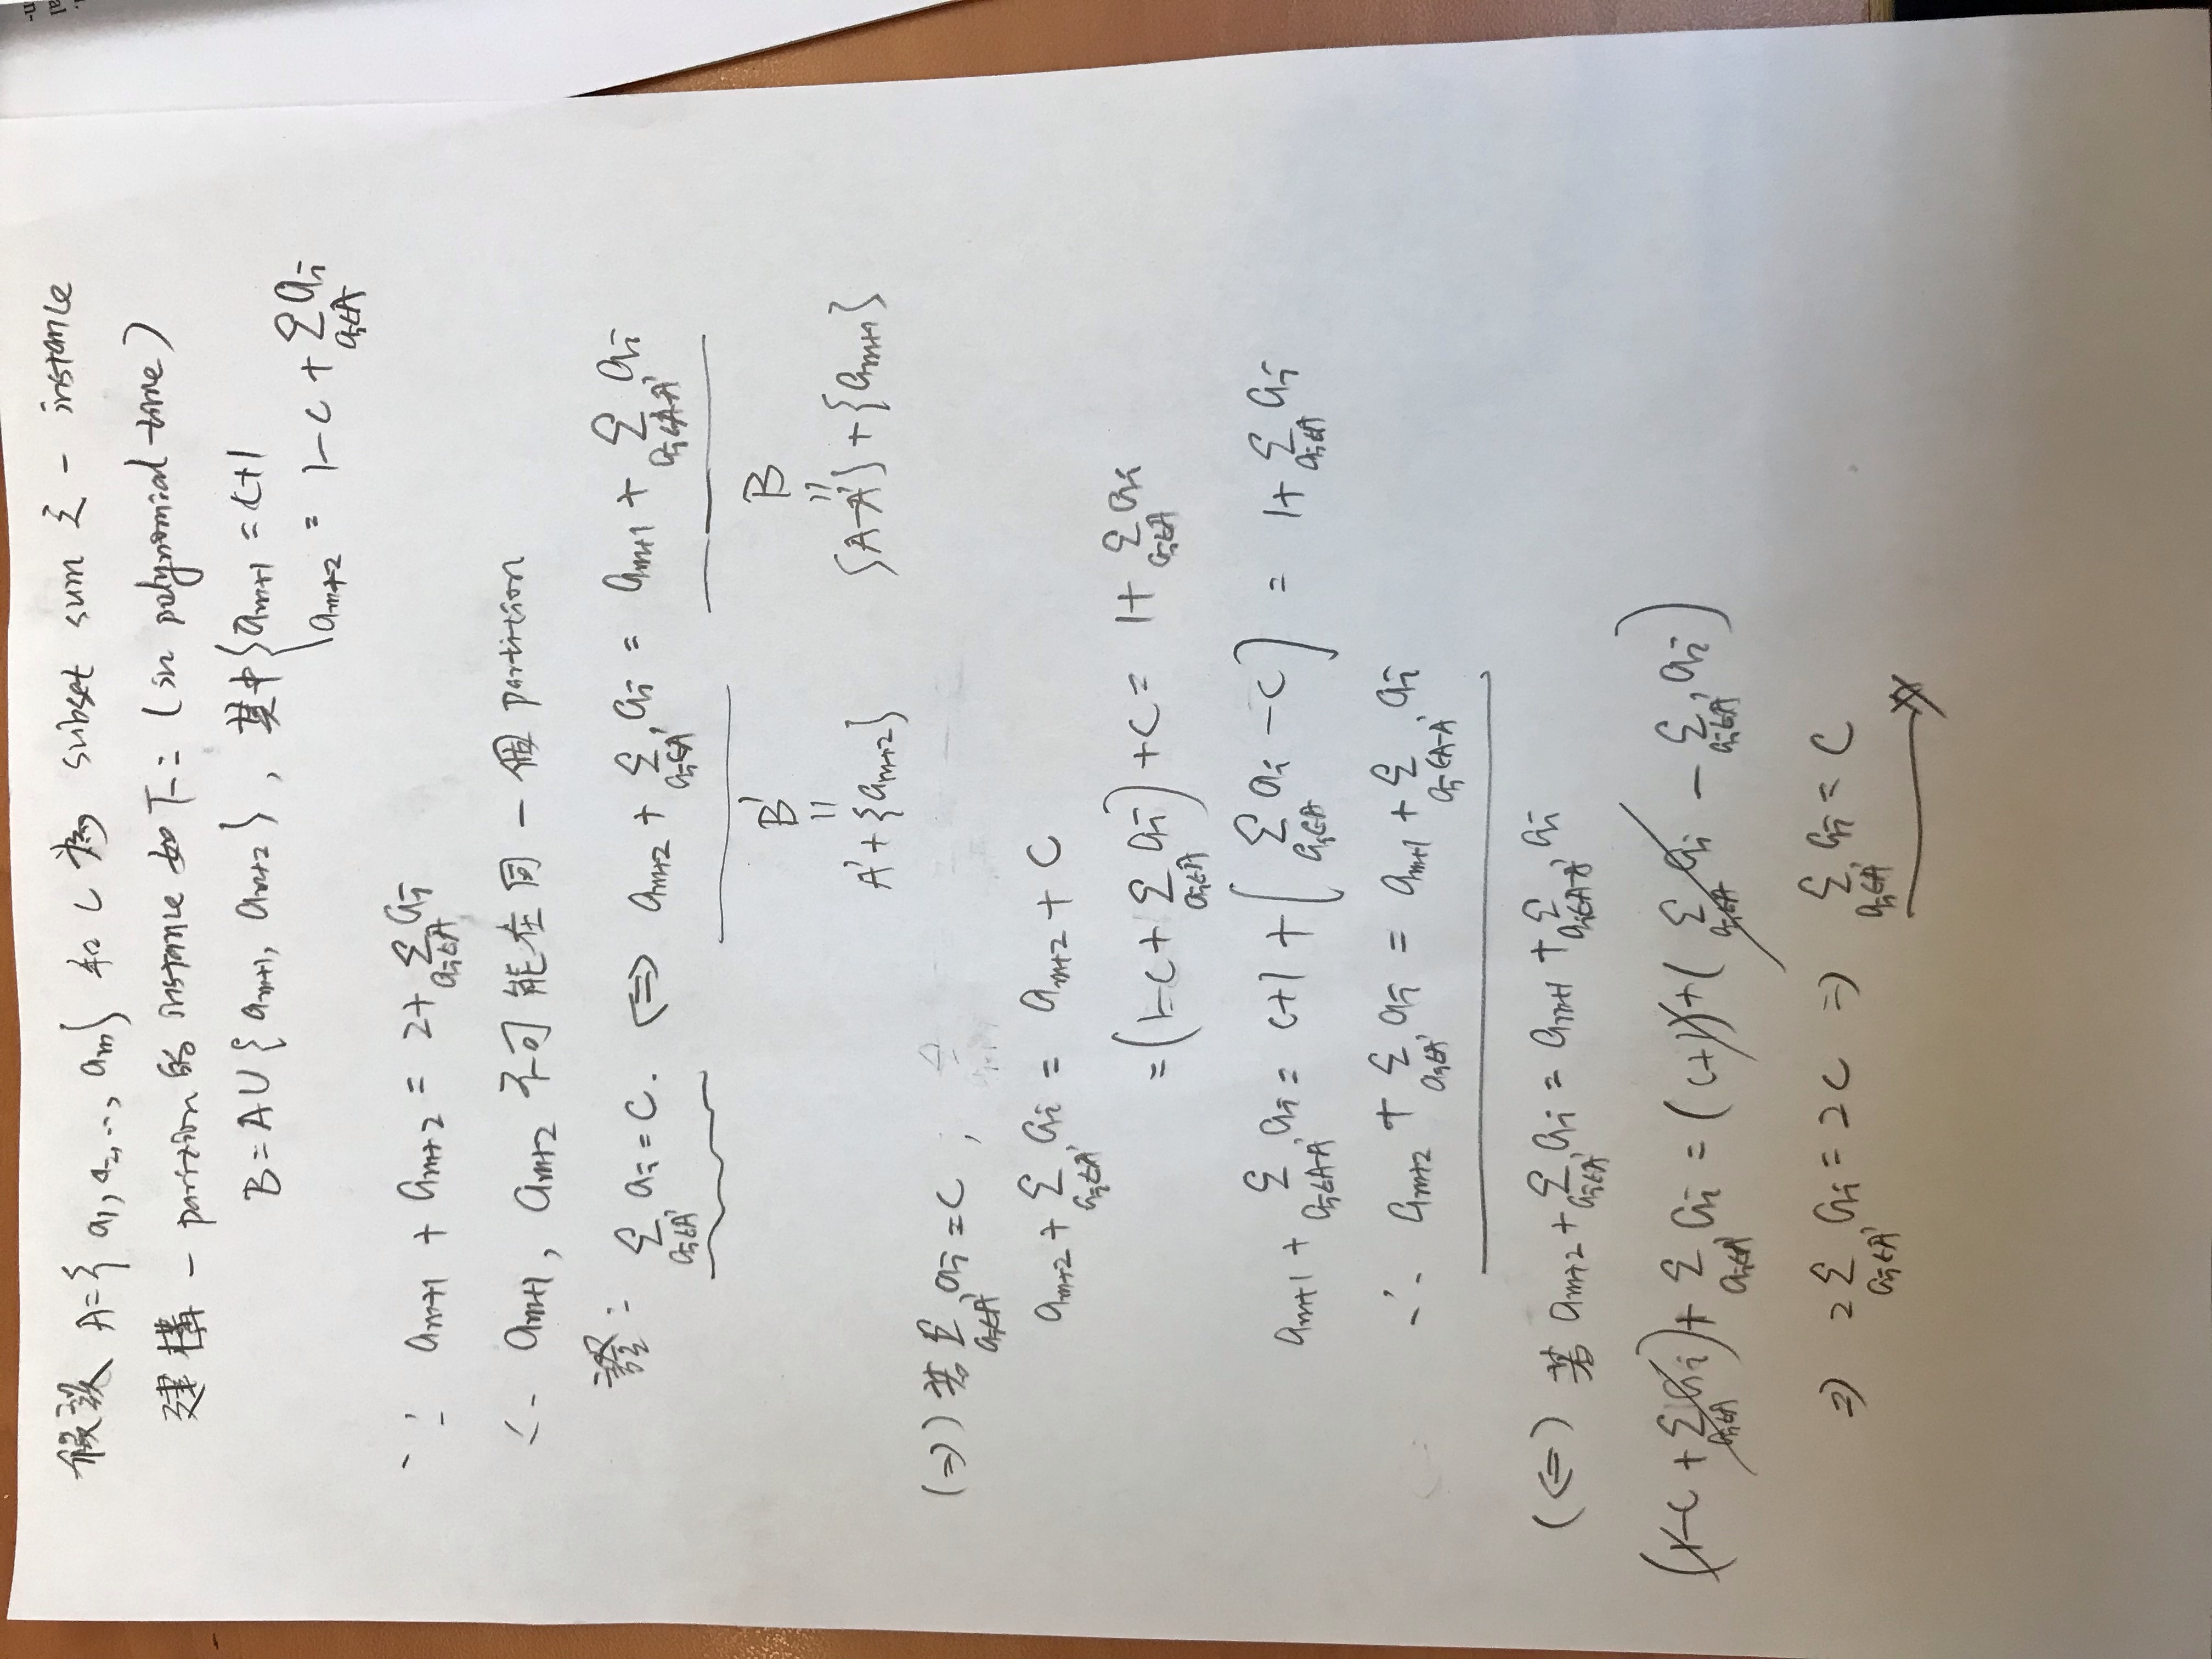 假設 A={a1, a2, ..., am} 和 C 為 subset sum 之一 instance
建構一 partition 的 instance 如下: (in polynomial time)
B = A ∪ {am+1, am+2}, 其中 { am+1 = C+1
am+2 = 1-C + Σ_{ai∈A} ai
∵ am+1 + am+2 = 2 + Σ_{ai∈A} ai
∴ am+1, am+2 不可能在同一個 partition
證: Σ_{ai∈A'} ai = C. ⟺ am+2 + Σ_{ai∈A'} ai = am+1 + Σ_{ai∈A-A'} ai
B' B
|| ||
A'+{am+2} {A-A'}+{am+1}
(⇒) 若 Σ_{ai∈A'} ai = C,
am+2 + Σ_{ai∈A'} ai = am+2 + C
= (1-C + Σ_{ai∈A} ai) + C = 1 + Σ_{ai∈A} ai
am+1 + Σ_{ai∈A-A'} ai = C+1 + [Σ_{ai∈A} ai - C] = 1 + Σ_{ai∈A} ai
∴ am+2 + Σ_{ai∈A'} ai = am+1 + Σ_{ai∈A-A'} ai
(⇐) 若 am+2 + Σ_{ai∈A'} ai = am+1 + Σ_{ai∈A-A'} ai
(1-C + Σ_{ai∈A} ai) + Σ_{ai∈A'} ai = (C+1) + (Σ_{ai∈A} ai - Σ_{ai∈A'} ai)
⇒ 2Σ_{ai∈A'} ai = 2C ⇒ Σ_{ai∈A'} ai = C